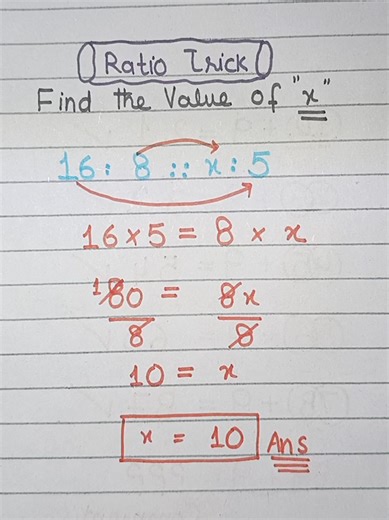 Ratio Trick
Find the Value of "x"
16 : 8 :: x : 5
16 × 5 = 8 × x
180 = 8x
8 8
10 = x
x = 10 Ans